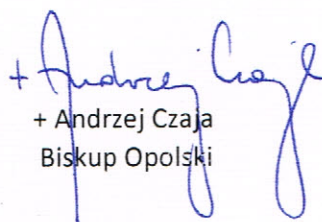 + Andrzej Czaja
+ Andrzej Czaja
Biskup Opolski